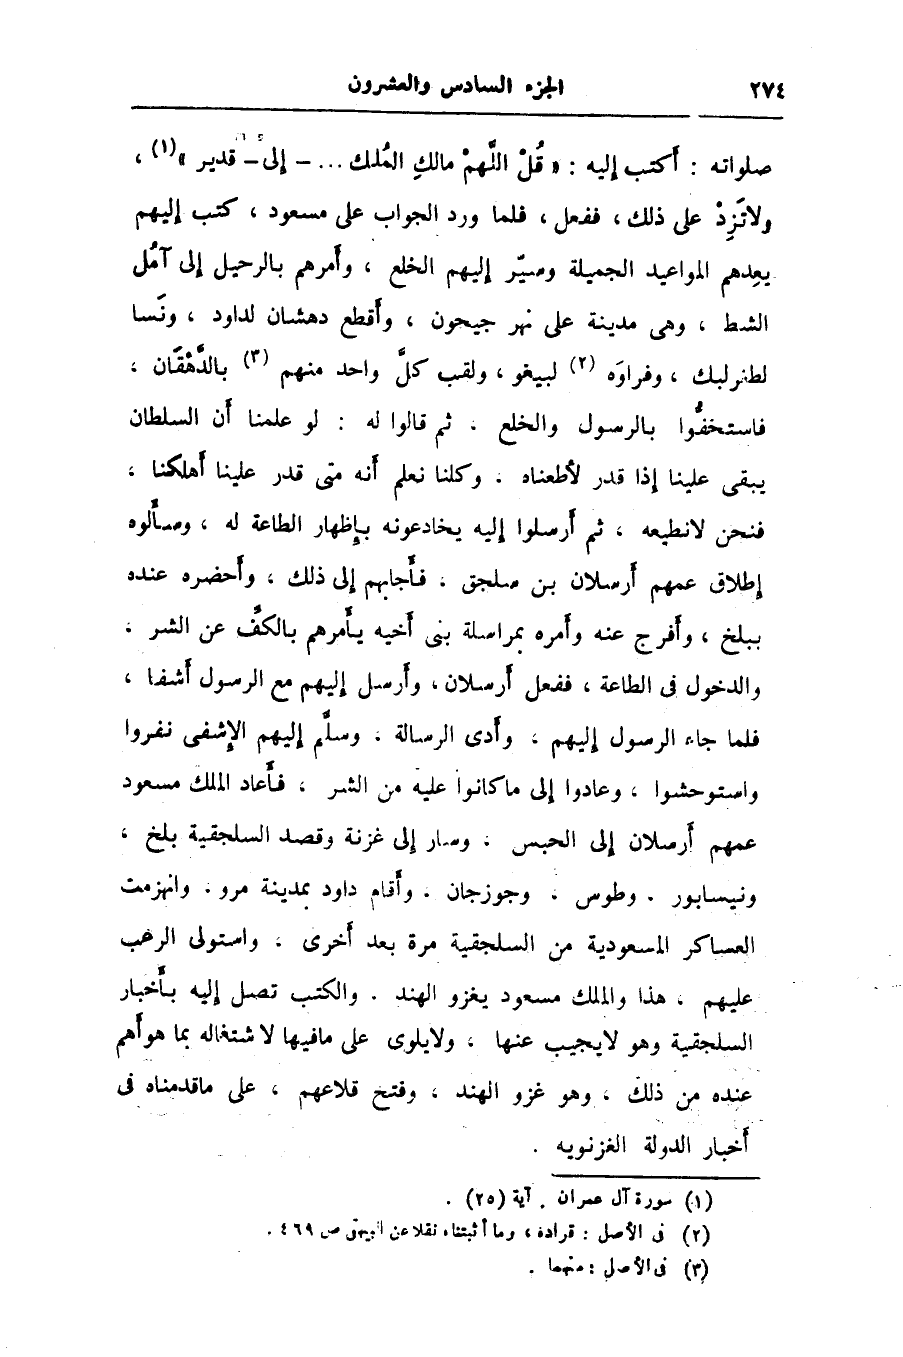 ٢٧٤ الجزء السادس والعشرون
صلواته : أكتب إليه : « قُلْ اللَّهمْ مالكِ المُلك ... – إلى – قدير »(١) ،
ولاتَزِدْ على ذلك ، ففعل ، فلما ورد الجواب على مسعود ، كتب إليهم
يعِدهم المواعيد الجميلة وسيّر إليهم الخلع ، وأمرهم بالرحيل إلى آمُل
الشط ، وهى مدينة على نهر جيحون ، وأقطع دهشان لداود ، ونَسا
لطغرلبك ، وفراوَه (٢) لبيغو ، ولقب كلَّ واحد منهم (٣) بالدَّهْقَان ،
فاستخفُّوا بالرسول والخلع . ثم قالوا له : لو علمنا أن السلطان
يبقى علينا إذا قدر لأطعناه . وكلنا نعلم أنه متى قدر علينا أهلكنا ،
فنحن لانطيعه ، ثم أرسلوا إليه يخادعونه بإظهار الطاعة له ، وسألوه
إطلاق عمهم أرسلان بن سلجق . فأجابهم إلى ذلك ، وأحضره عنده
ببلخ ، وأفرج عنه وأمره بمراسلة بنى أخيه يأمرهم بالكفِّ عن الشر .
والدخول فى الطاعة ، ففعل أرسلان ، وأرسل إليهم مع الرسول أشفا ،
فلما جاء الرسول إليهم ، وأدى الرسالة . وسلَّم إليهم الإشفى نفروا
واستوحشوا ، وعادوا إلى ماكانوا عليه من الشر ، فأعاد الملك مسعود
عمهم أرسلان إلى الحبس . وسار إلى غزنة وقصد السلجقية بلخ ،
ونيسابور . وطوس . وجوزجان . وأقام داود بمدينة مرو . وانهزمت
العساكر المسعودية من السلجقية مرة بعد أخرى ، واستولى الرعب
عليهم . هذا والملك مسعود يغزو الهند . والكتب تصل إليه بأخبار
السلجقية وهو لايجيب عنها ، ولايلوى على مافيها لاشتغاله بما هوأهم
عنده من ذلك ، وهو غزو الهند ، وفتح قلاعهم ، على ماقدمناه فى
أخبار الدولة الغزنويه .
(١) سورة آل عمران . آية (٢٥) .
(٢) فى الأصل : قراده ، وما أثبتناه نقلا عن البيهقى ص ٤٦٩ .
(٣) فى الأصل : منهما .